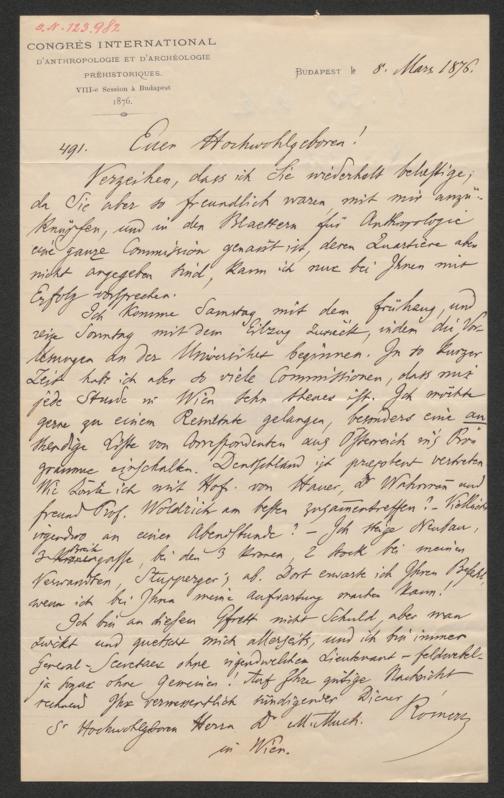 O.N. 123.982
CONGRÈS INTERNATIONAL
D'ANTHROPOLOGIE ET D'ARCHÉOLOGIE
PRÉHISTORIQUES.
VIII-e Session à Budapest
1876.
BUDAPEST le 8. März 1876.
491. Euer Hochwohlgeboren!
Verzeihen, dass ich Sie wiederholt belästige;
da Sie aber so freundlich waren mit mir anzu-
knüpfen, und in den Blaettern für Anthropologie
eine ganze Commission genannt ist, deren Quartiere aber
nicht angegeben sind, kann ich nur bei Ihnen mit
Erfolg vorsprechen.
Ich komme Samstag mit dem Frühzug, und
reise Sonntag mit dem Eilzug zurück, indem die Vor-
lesungen an der Universität beginnen. In so kurzer
Zeit hab ich aber so viele Commissionen, dass mir
jede Stunde in Wien sehr theuer ist. Ich möchte
gerne zu einem Resultate gelangen, besonders eine an
ständige Liste von Correspondenten aus Österreich in's Pro-
gramme einschalten. Deutschland ist praepotent vertreten
Wie könnte ich mit Hof. von Hauer, Dr Wahrmann und
Freund Prof. Woldrich am besten zusammentreffen? - Vielleicht
irgendwo an einer Abendstunde? - Ich steige Neubau,
3 gasse, bei den 3 Kronen, 2 Stock bei meinen
Verwandten, ab. Dort erwarte ich Ihren Befehl,
wenn ich bei Ihnen meine Aufwartung machen kann!
Ich bin an diesem Gfrett nicht Schuld, aber man
zwickt und quetscht mich allerseits, und ich bin immer
General-Secretaer ohne irgendwelchen Lieutenant - feldwebel -
ja sogar ohne Gemeinen! Auf Ihre gütige Nachricht
rechnend Ihr Diener Rómer
Sr Hochwohlgboren Herrn Dr M. Much.
in Wien.